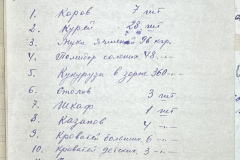 1. Коров 7 шт
2. Курей 28 шт
3. Мука ячменой 96 кгр.
4. Помидор солених 48 -"-
5. Кукуруза в зерне 360 -"-
6. Столов 3 шт
7. Шкаф 1 шт
8. Казанов 4 -"-
9. Кроватей больших 6 -"-
10. Кроватей детских 3 -"-